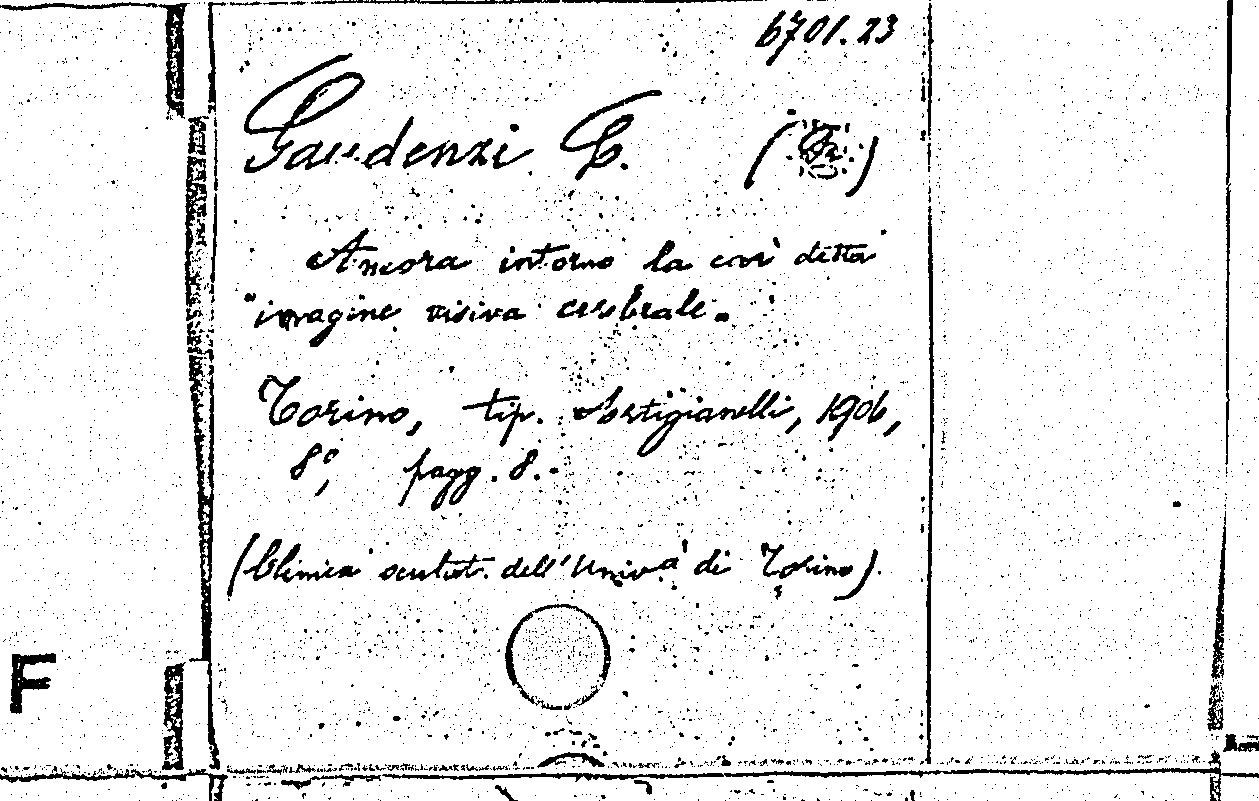 6701.23
Gaudenzi C.
Ancora intorno la così detta
"imagine visiva cerebrale."
Torino, tip. Artigianelli, 1906,
8°, pagg. 8.-
(Clinica oculist. dell'Univ.à di Torino).
F